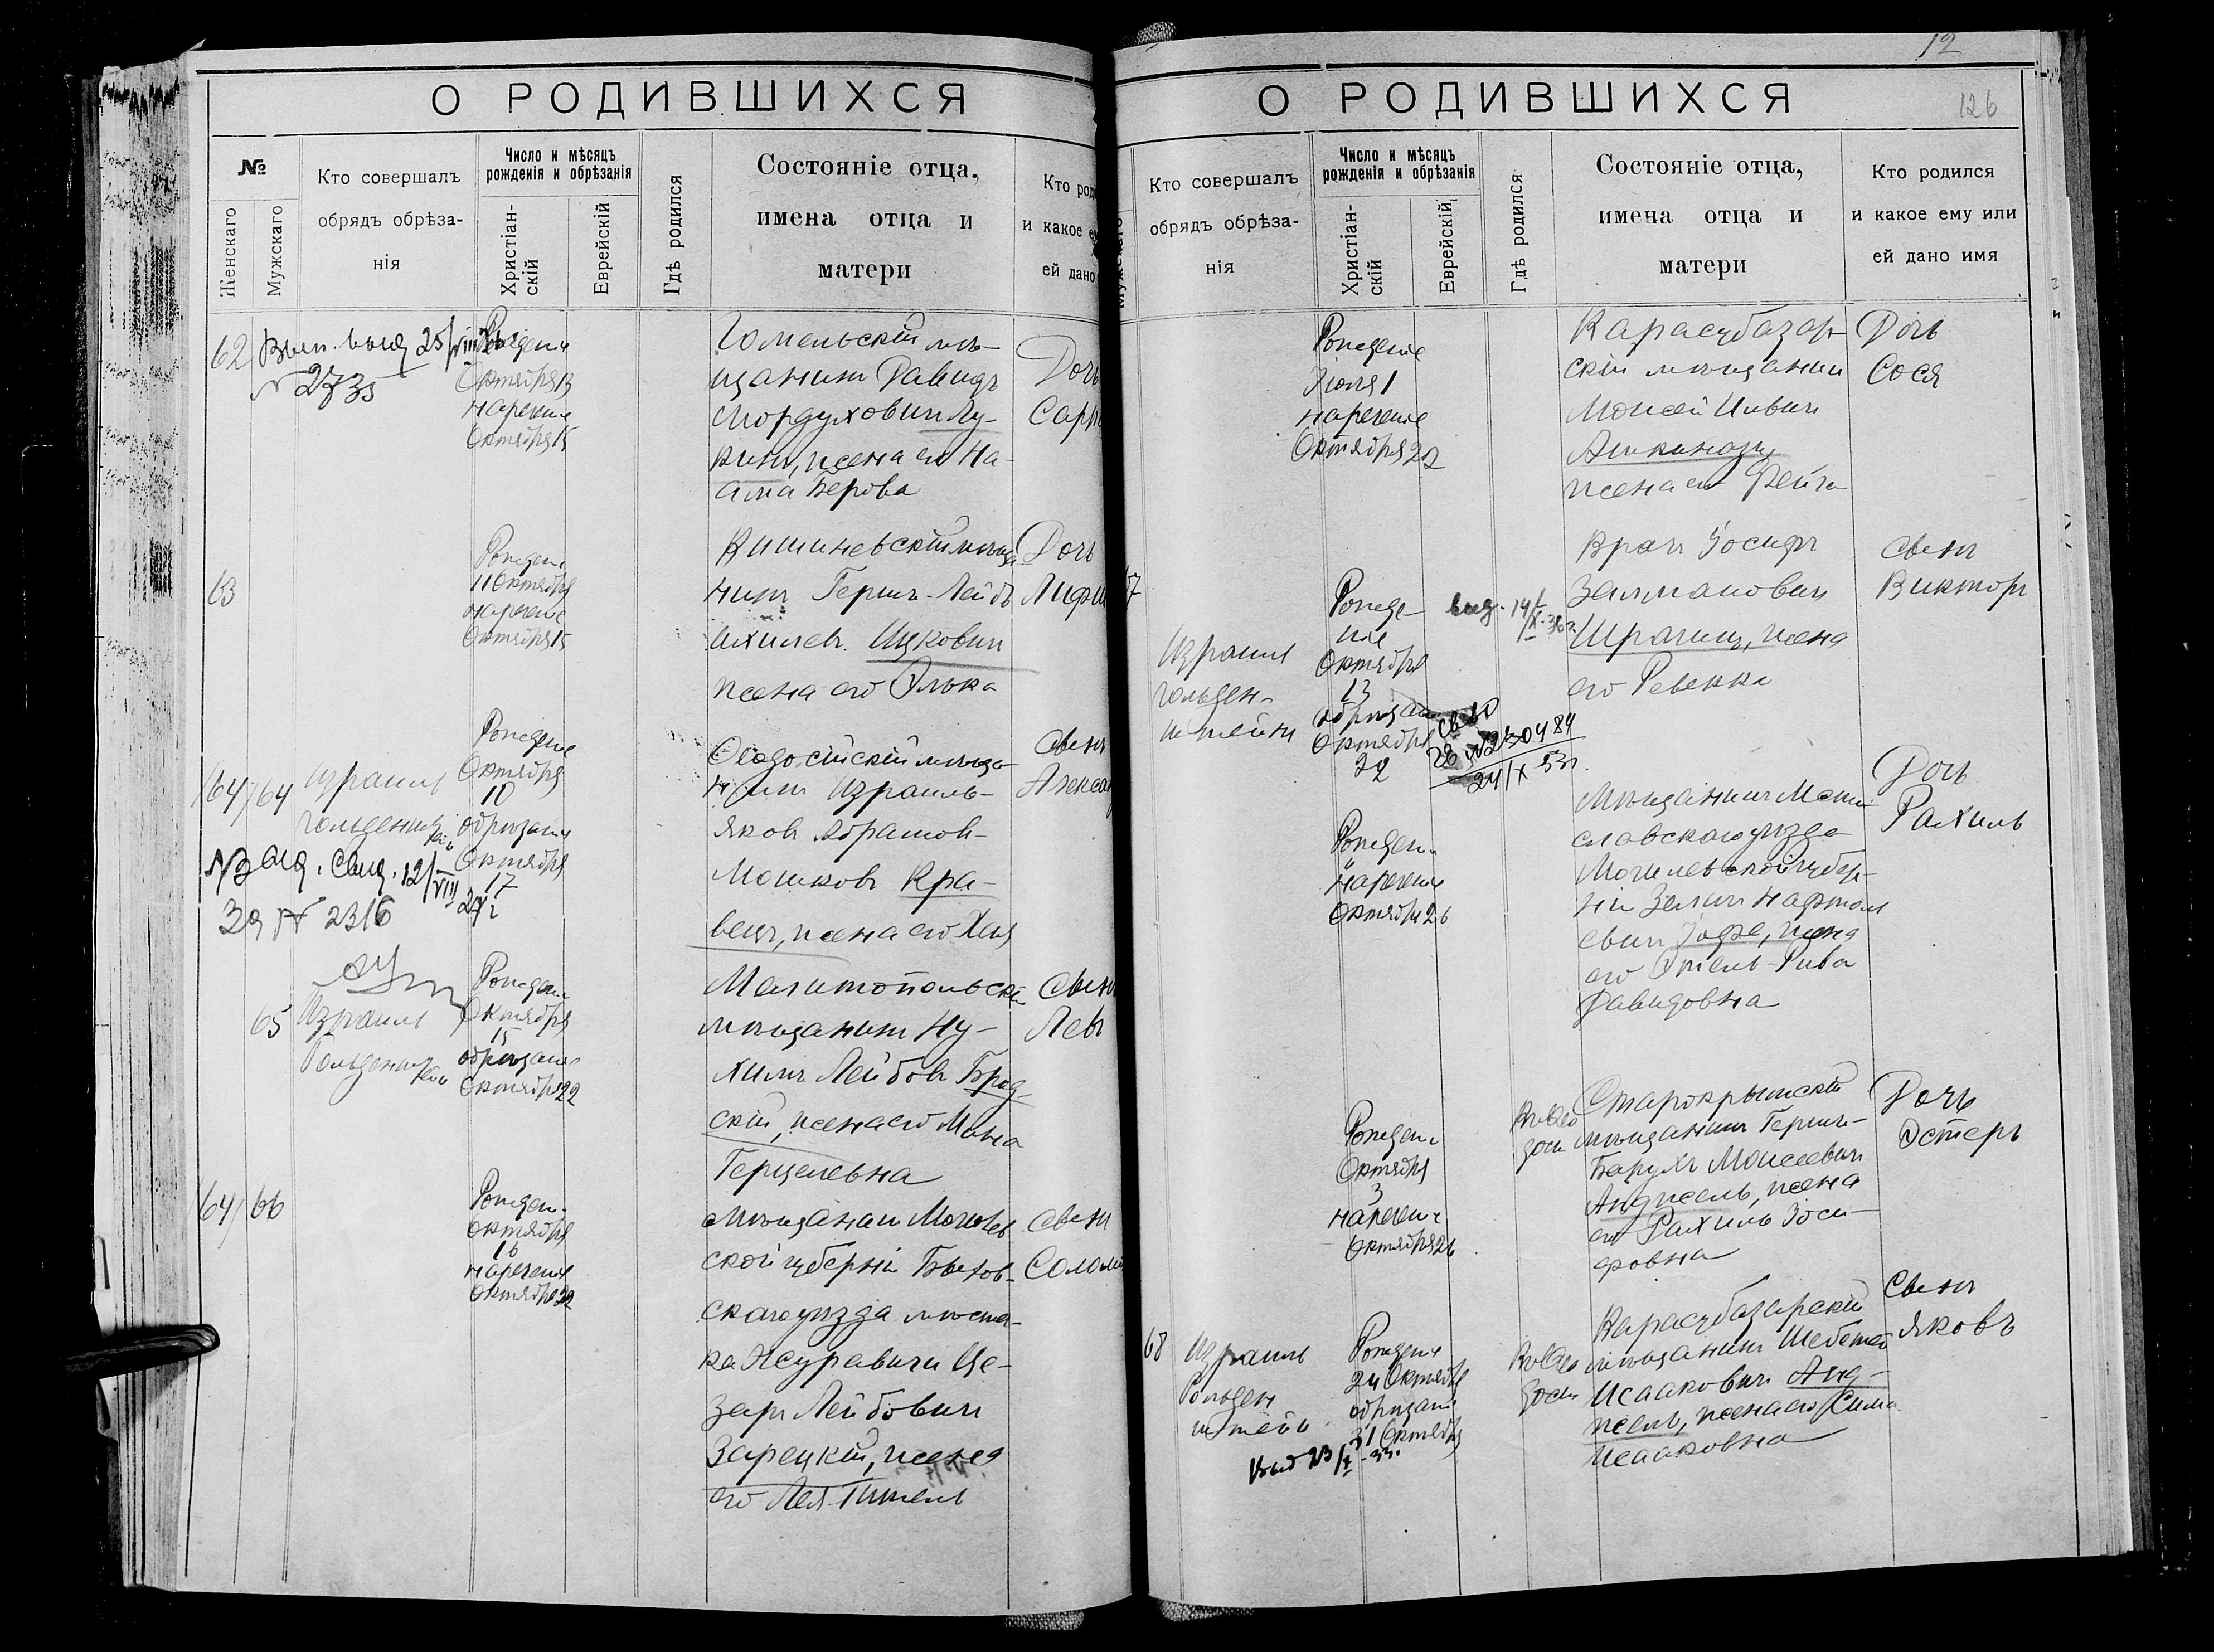 О РОДИВШИХСЯ
№
Женскаго
Мужскаго
Кто совершалъ
обрядъ обрѣза-
нія
Число и мѣсяцъ
рожденія и обрѣзанія
Христіан-
скій
Еврейскій
Гдѣ родился
Состояніе отца,
имена отца и
матери
Кто род
и какое е
ей дано
62
Вып. выд 25/VIII
№ 2735
Рождение
Октября 13
наречение
Октября 15
Гомельский мѣ-
щанинъ Давидъ
Мордуховичъ Лу-
кинъ, жена его На-
ама Берова
Дочь
Сарр
63
Рожден.
11 Октября
наречение
Октября 15
Кишиневскій мѣща
нинъ Гершъ-Лейбъ
Ихилев. Ицкович
жена его Элька
Дочь
64/64
Израиль
Гольденштейн
Рождение
Октября
10
обрѣзание
Октября
17
Выд. Свид. 12/VIII 27 г
За № 2316
Ѳеодосійскій мѣща
нинъ Израиль-
Яков Абрамов-
Мошковъ Кра-
вецъ, жена его Хая
Сынъ
Алекса
65
Израиль
Гольденштейн
Рожден.
Октября
15
обрѣзание
Октября 22
Мелитопольскій
мѣщанинъ Ну-
химъ Лейбов Брод
скій, жена его Маня
Герцелевна
Сынъ
Левъ
64/66
Рожден.
Октября
16
наречение
Октября 22
Мѣщанин Могилев
ской губерніи Быхов-
скаго уѣзда мѣстеч-
ка Журавичи Це-
зарь Лейбович
Зарецкій, жена
его Лея-Гитель
Сынъ
Соломо
12
126
О РОДИВШИХСЯ
Мужскаго
Кто совершалъ
обрядъ обрѣза-
нія
Число и мѣсяцъ
рожденія и обрѣзанія
Христіан-
скій
Еврейскій
Гдѣ родился
Состояніе отца,
имена отца и
матери
Кто родился
и какое ему или
ей дано имя
Рождение
Июля 1
наречение
Октября 22
Карасубазар-
скій мѣщанин
Моисей Ивович
Ашкинази,
жена его Фейга
Дочь
Сося
67
Израиль
Гольден-
штейн
Рожде-
ние
Октября
13
обрѣзание
Октября
22
выд. 14/X-36 г.
24/X 53 г.
Врач Іосифъ
Залманович
Шрагиц, жена
его Ревекка
Сынъ
Викторъ
Рожден.
наречение
Октября 26
Мѣщанинъ Мсти-
славскаго уѣзда
Могилевской губер-
ніи Залман Нафтол
евич Іоффе, жена
его Этель-Рива
Давидовна
Дочь
Рахиль
Рожден.
Октября
3
наречение
Октября 26
въ Ѳео
досии
Старокрымскій
мѣщанинъ Гершъ-
Барухъ Моисеевич
Анджель, жена
его Рахиль Іоси-
фовна
Дочь
Эстеръ
68
Израиль
Гольден
штейн
Рождение
24 Октября
обрѣзание
31 Октября
Выд 23/X-33 г.
въ Ѳео
досии
Карасубазарскій
мѣщанинъ Шебетей
Исаакович Анд-
жель, жена его Сима
Исааковна
Сынъ
Яковъ